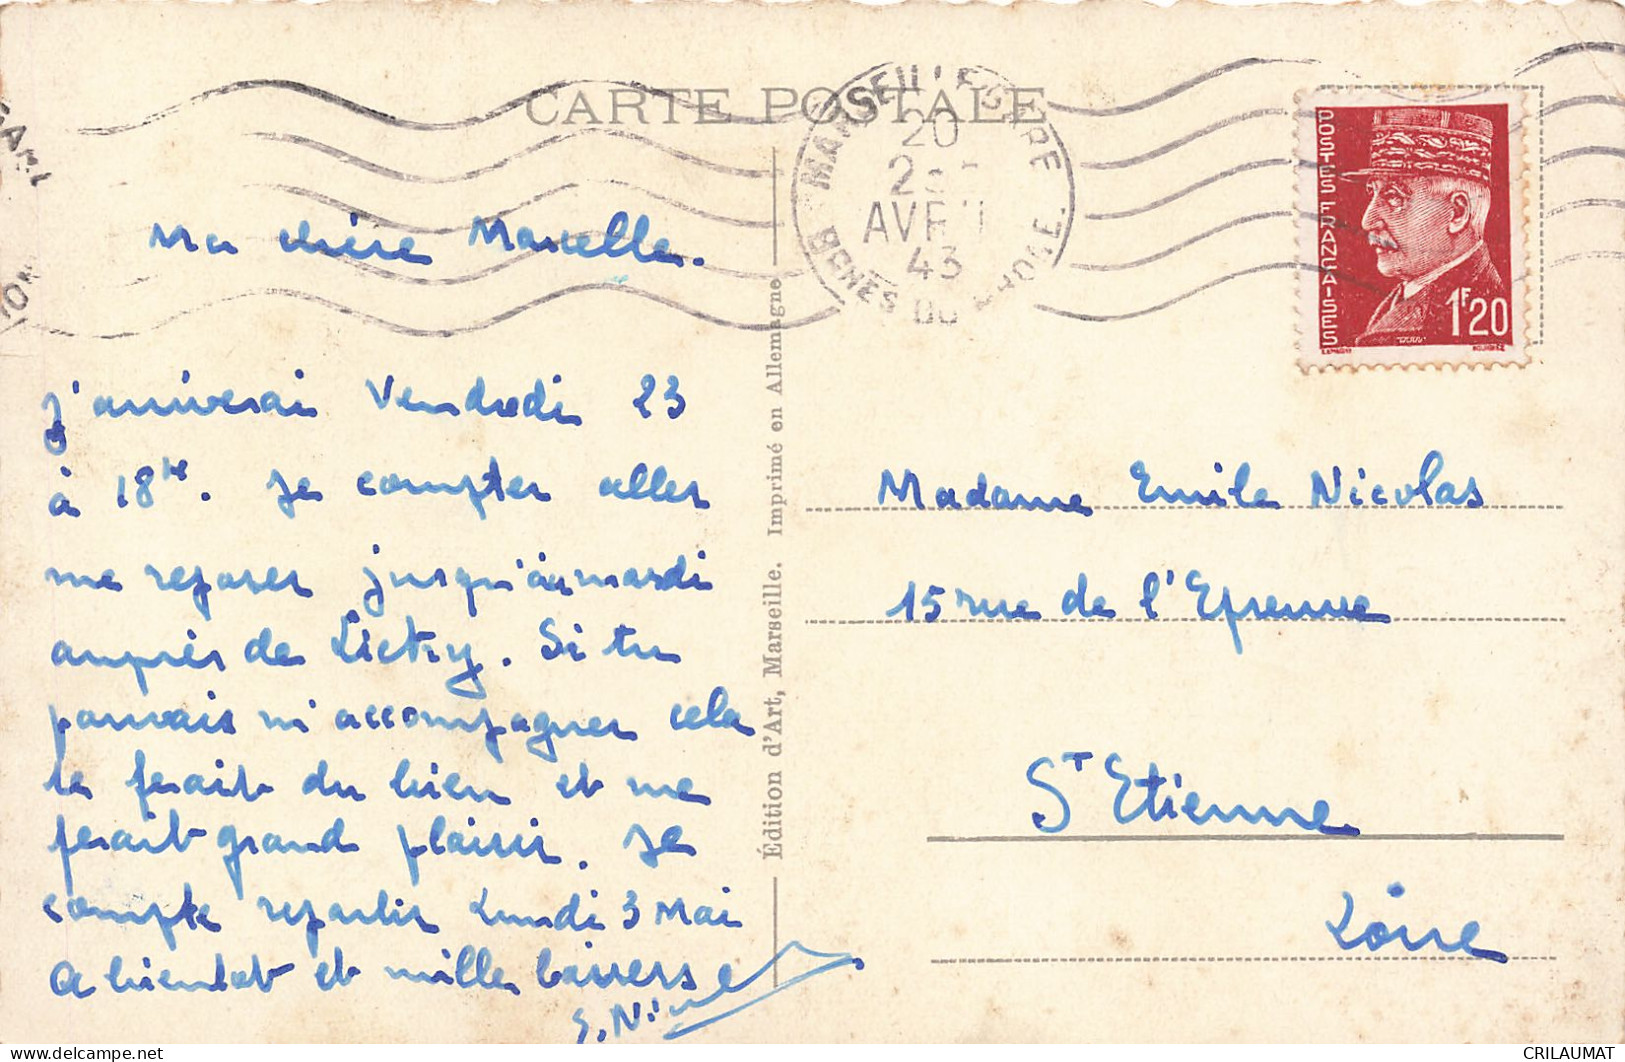 CARTE POSTALE
MARSEILLE GARE
20
AVRIL
43
BCHES DU RHONE
POSTES FRANÇAISES
1F20
Ma chère Marcelle.
J'arriverai Vendredi 23
à 18h. Je compter aller
me reposer jusqu'au mardi
auprès de Licky. Si tu
pouvais m'accompagner cela
te ferait du bien et me
ferait grand plaisir. Je
compte repartir Lundi 3 Mai
A bientot et mille baisers
Édition d'Art, Marseille. Imprimé en Allemagne
Madame Emile Nicolas
15 rue de l'Epreuve
ST Etienne
Loire
CRILAUMAT
delcampe.net